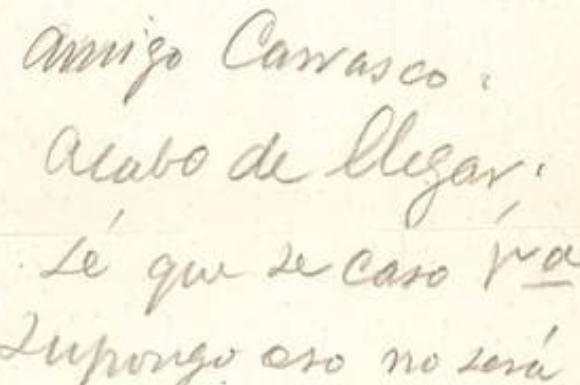 Amigo Carrasco:
Acabo de llegar.
Sé que se casó Vª
Supongo eso no será